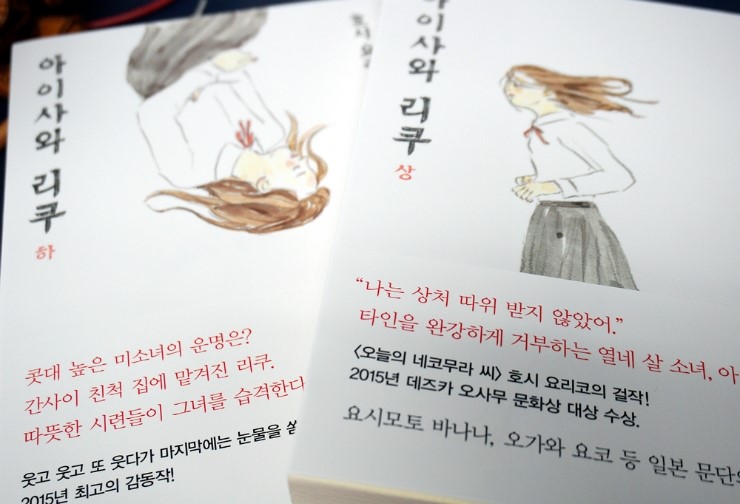 아이사와 리쿠
하
콧대 높은 미소녀의 운명은?
간사이 친척 집에 맡겨진 리쿠.
따뜻한 시련들이 그녀를 습격한다
웃고 웃고 또 웃다가 마지막에는 눈물을
2015년 최고의 감동작!
아이사와 리쿠
상
“나는 상처 따위 받지 않았어.”
타인을 완강하게 거부하는 열네 살 소녀, 아
〈오늘의 네코무라 씨〉 호시 요리코의 걸작!
2015년 데즈카 오사무 문화상 대상 수상.
요시모토 바나나, 오가와 요코 등 일본 문단의